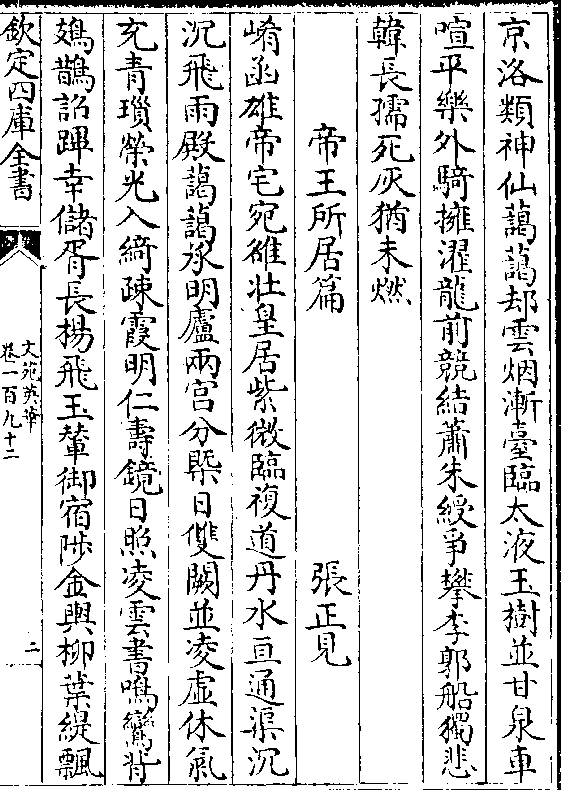 京洛類神仙藹藹却雲烟漸臺臨太液玉樹並甘泉車
喧平樂外騎擁濯龍前競結蕭朱綬爭攀李郭船獨悲
韓長孺死灰猶未燃
帝王所居篇 張正見
崤函雄帝宅宛雒壯皇居紫微臨複道丹水亘通渠沉
沉飛雨殿藹藹承明廬兩宫分槩日雙闕並凌虛休氣
充青瑣榮光入綺疎霞明仁壽鏡日照凌雲書鳴鸞背
鳷鵲詔蹕幸儲胥長楊飛玉輦御宿陟金輿柳葉緹飄
欽定四庫全書
文苑英華
卷一百九十二
二